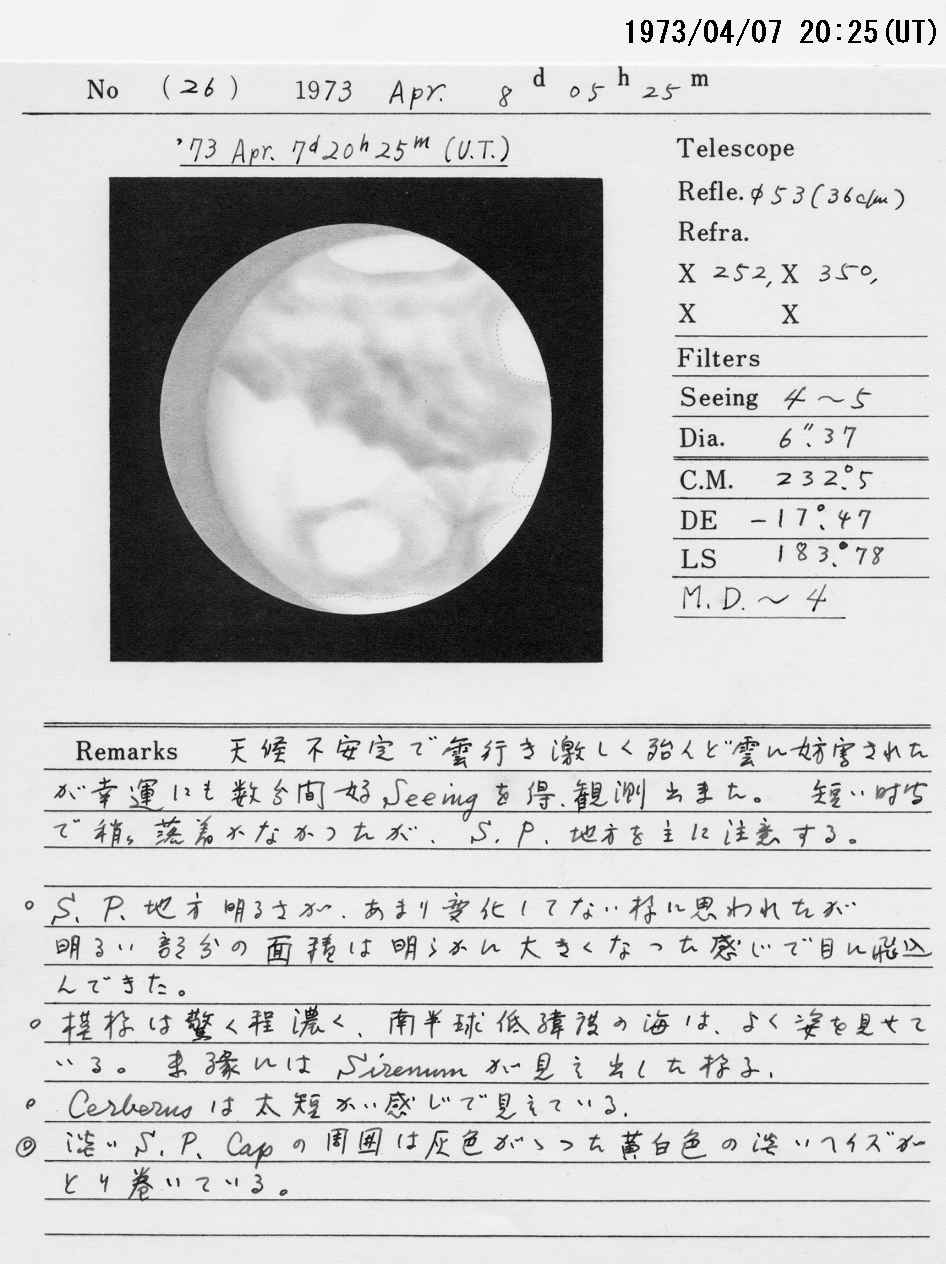 1973/04/07 20:25(UT)
No (26) 1973 Apr. 8 d 05 h 25 m
'73 Apr. 7d20h25m (U.T.)
Telescope
Refle. φ53(36c/m)
Refra.
X 252, X 350,
X X
Filters
Seeing 4～5
Dia. 6".37
C.M. 232°.5
DE -17°.47
LS 183°.78
M.D.～4
Remarks 天候不安定で雲行き激しく殆んど雲に妨害された
が幸運にも数分間好Seeingを得、観測出来た。 短い時間
で稍々落着かなかったが、S.P.地方を主に注意する。
○ S.P.地方明るさが、あまり変化してない様に思われたが
明るい部分の面積は明らかに大きくなった感じで目に飛込
んできた。
○ 模様は驚く程濃く、南半球低緯度の海は、よく姿を見せて
いる。 東縁には Sirenumが見え出した様子.
○ Cerberusは太短かい感じで見えている.
◎ 淡い S.P. Capの周囲は灰色がゝった黄白色の淡いヘイズが
とり巻いている。